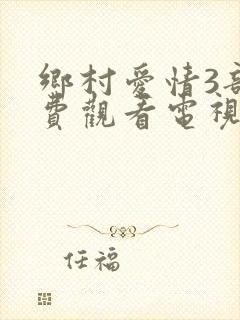 鄉村愛情3部
費觀看電視
任福